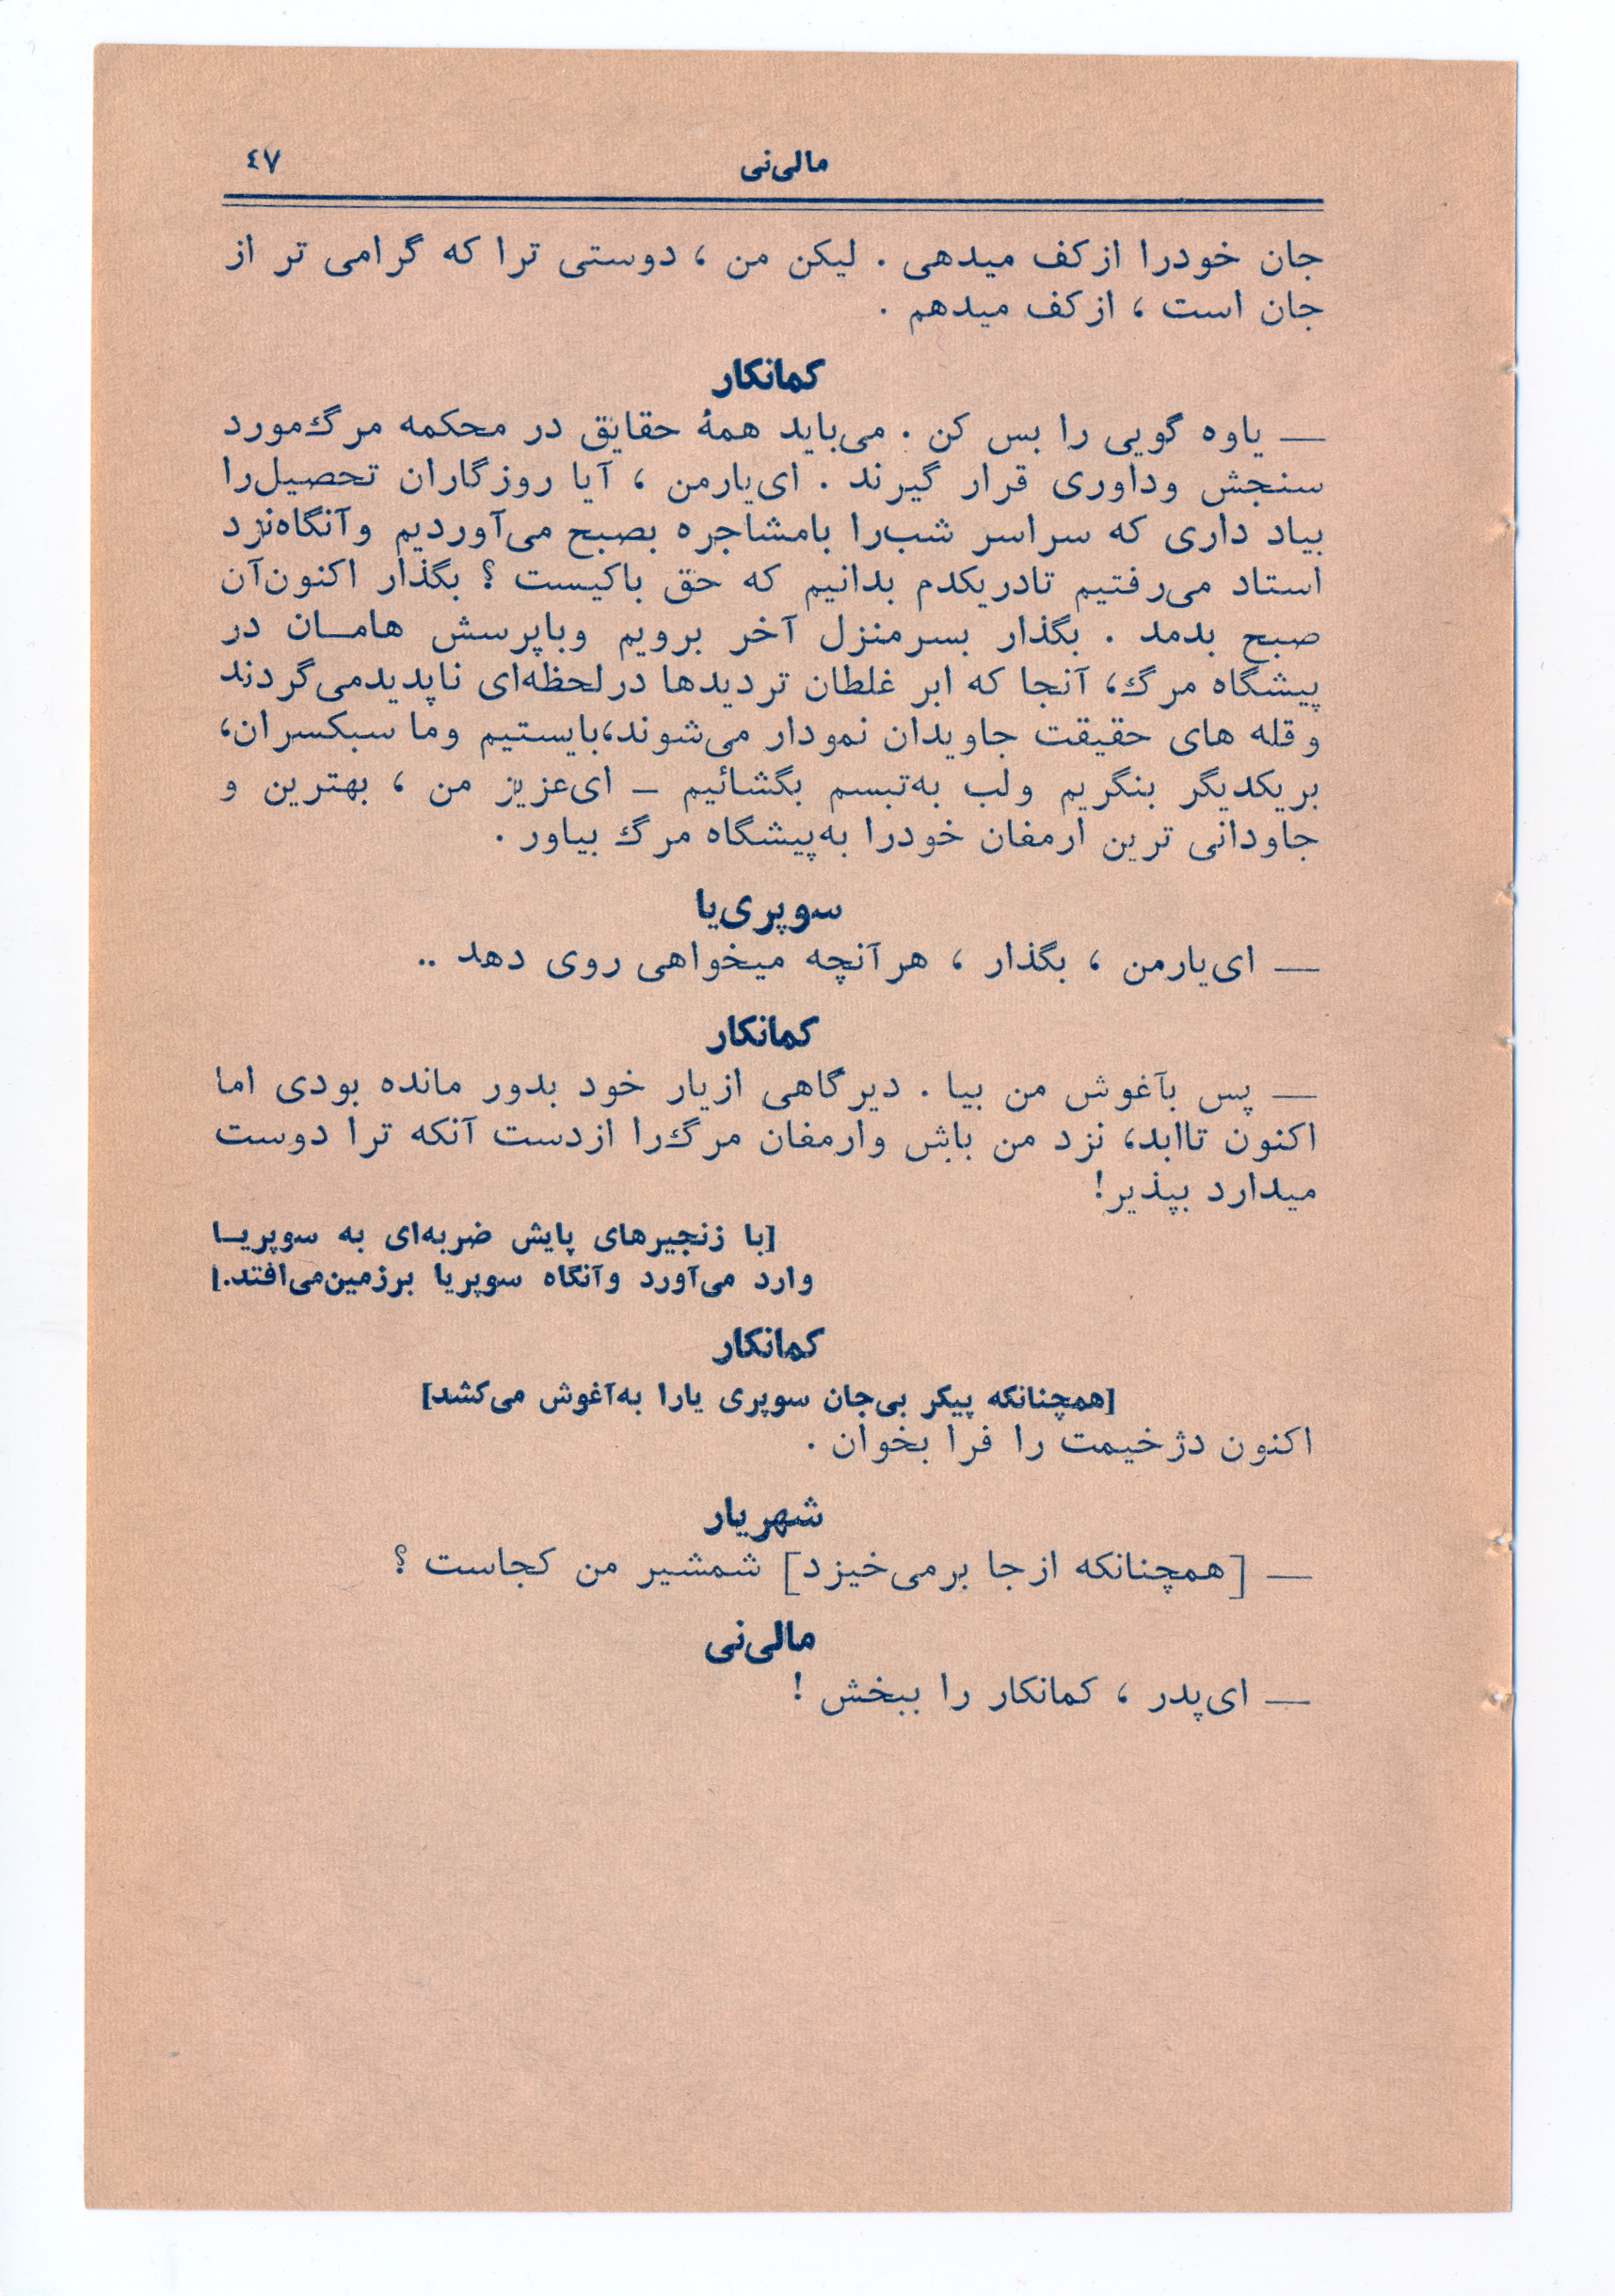 مالی‌نی ٤٧
جان خودرا از کف میدهی . لیکن من ، دوستی ترا که گرامی تر از
جان است ، از کف میدهم .
کمانکار
— یاوه گویی را بس کن . می‌باید همهٔ حقایق در محکمه مرگ‌مورد
سنجش وداوری قرار گیرند . ای‌یارمن ، آیا روزگاران تحصیل‌را
بیاد داری که سراسر شب‌را بامشاجره بصبح می‌آوردیم وآنگاه‌نزد
استاد می‌رفتیم تادریکدم بدانیم که حق باکیست ؟ بگذار اکنون‌آن
صبح بدمد . بگذار بسرمنزل آخر برویم وباپرسش هامـان در
پیشگاه مرگ، آنجا که ابر غلطان تردیدها درلحظه‌ای ناپدیدمی‌گردند
وقله های حقیقت جاویدان نمودار می‌شوند،بایستیم وما سبکسران،
بریکدیگر بنگریم ولب به‌تبسم بگشائیم – ای‌عزیز من ، بهترین و
جاودانی ترین ارمغان خودرا به‌پیشگاه مرگ بیاور .
سوپری‌یا
— ای‌یارمن ، بگذار ، هرآنچه میخواهی روی دهد ..
کمانکار
— پس بآغوش من بیا . دیرگاهی ازیار خود بدور مانده بودی اما
اکنون تاابد، نزد من باش وارمغان مرگ‌را ازدست آنکه ترا دوست
میدارد بپذیر!
[با زنجیرهای پایش ضربه‌ای به سوپریـا
وارد می‌آورد وآنگاه سوپریا برزمین‌می‌افتد.]
کمانکار
[همچنانکه پیکر بی‌جان سوپری یارا به‌آغوش می‌کشد]
اکنون دژخیمت را فرا بخوان .
شهریار
— [همچنانکه ازجا برمی‌خیزد] شمشیر من کجاست ؟
مالی‌نی
— ای‌پدر ، کمانکار را ببخش !